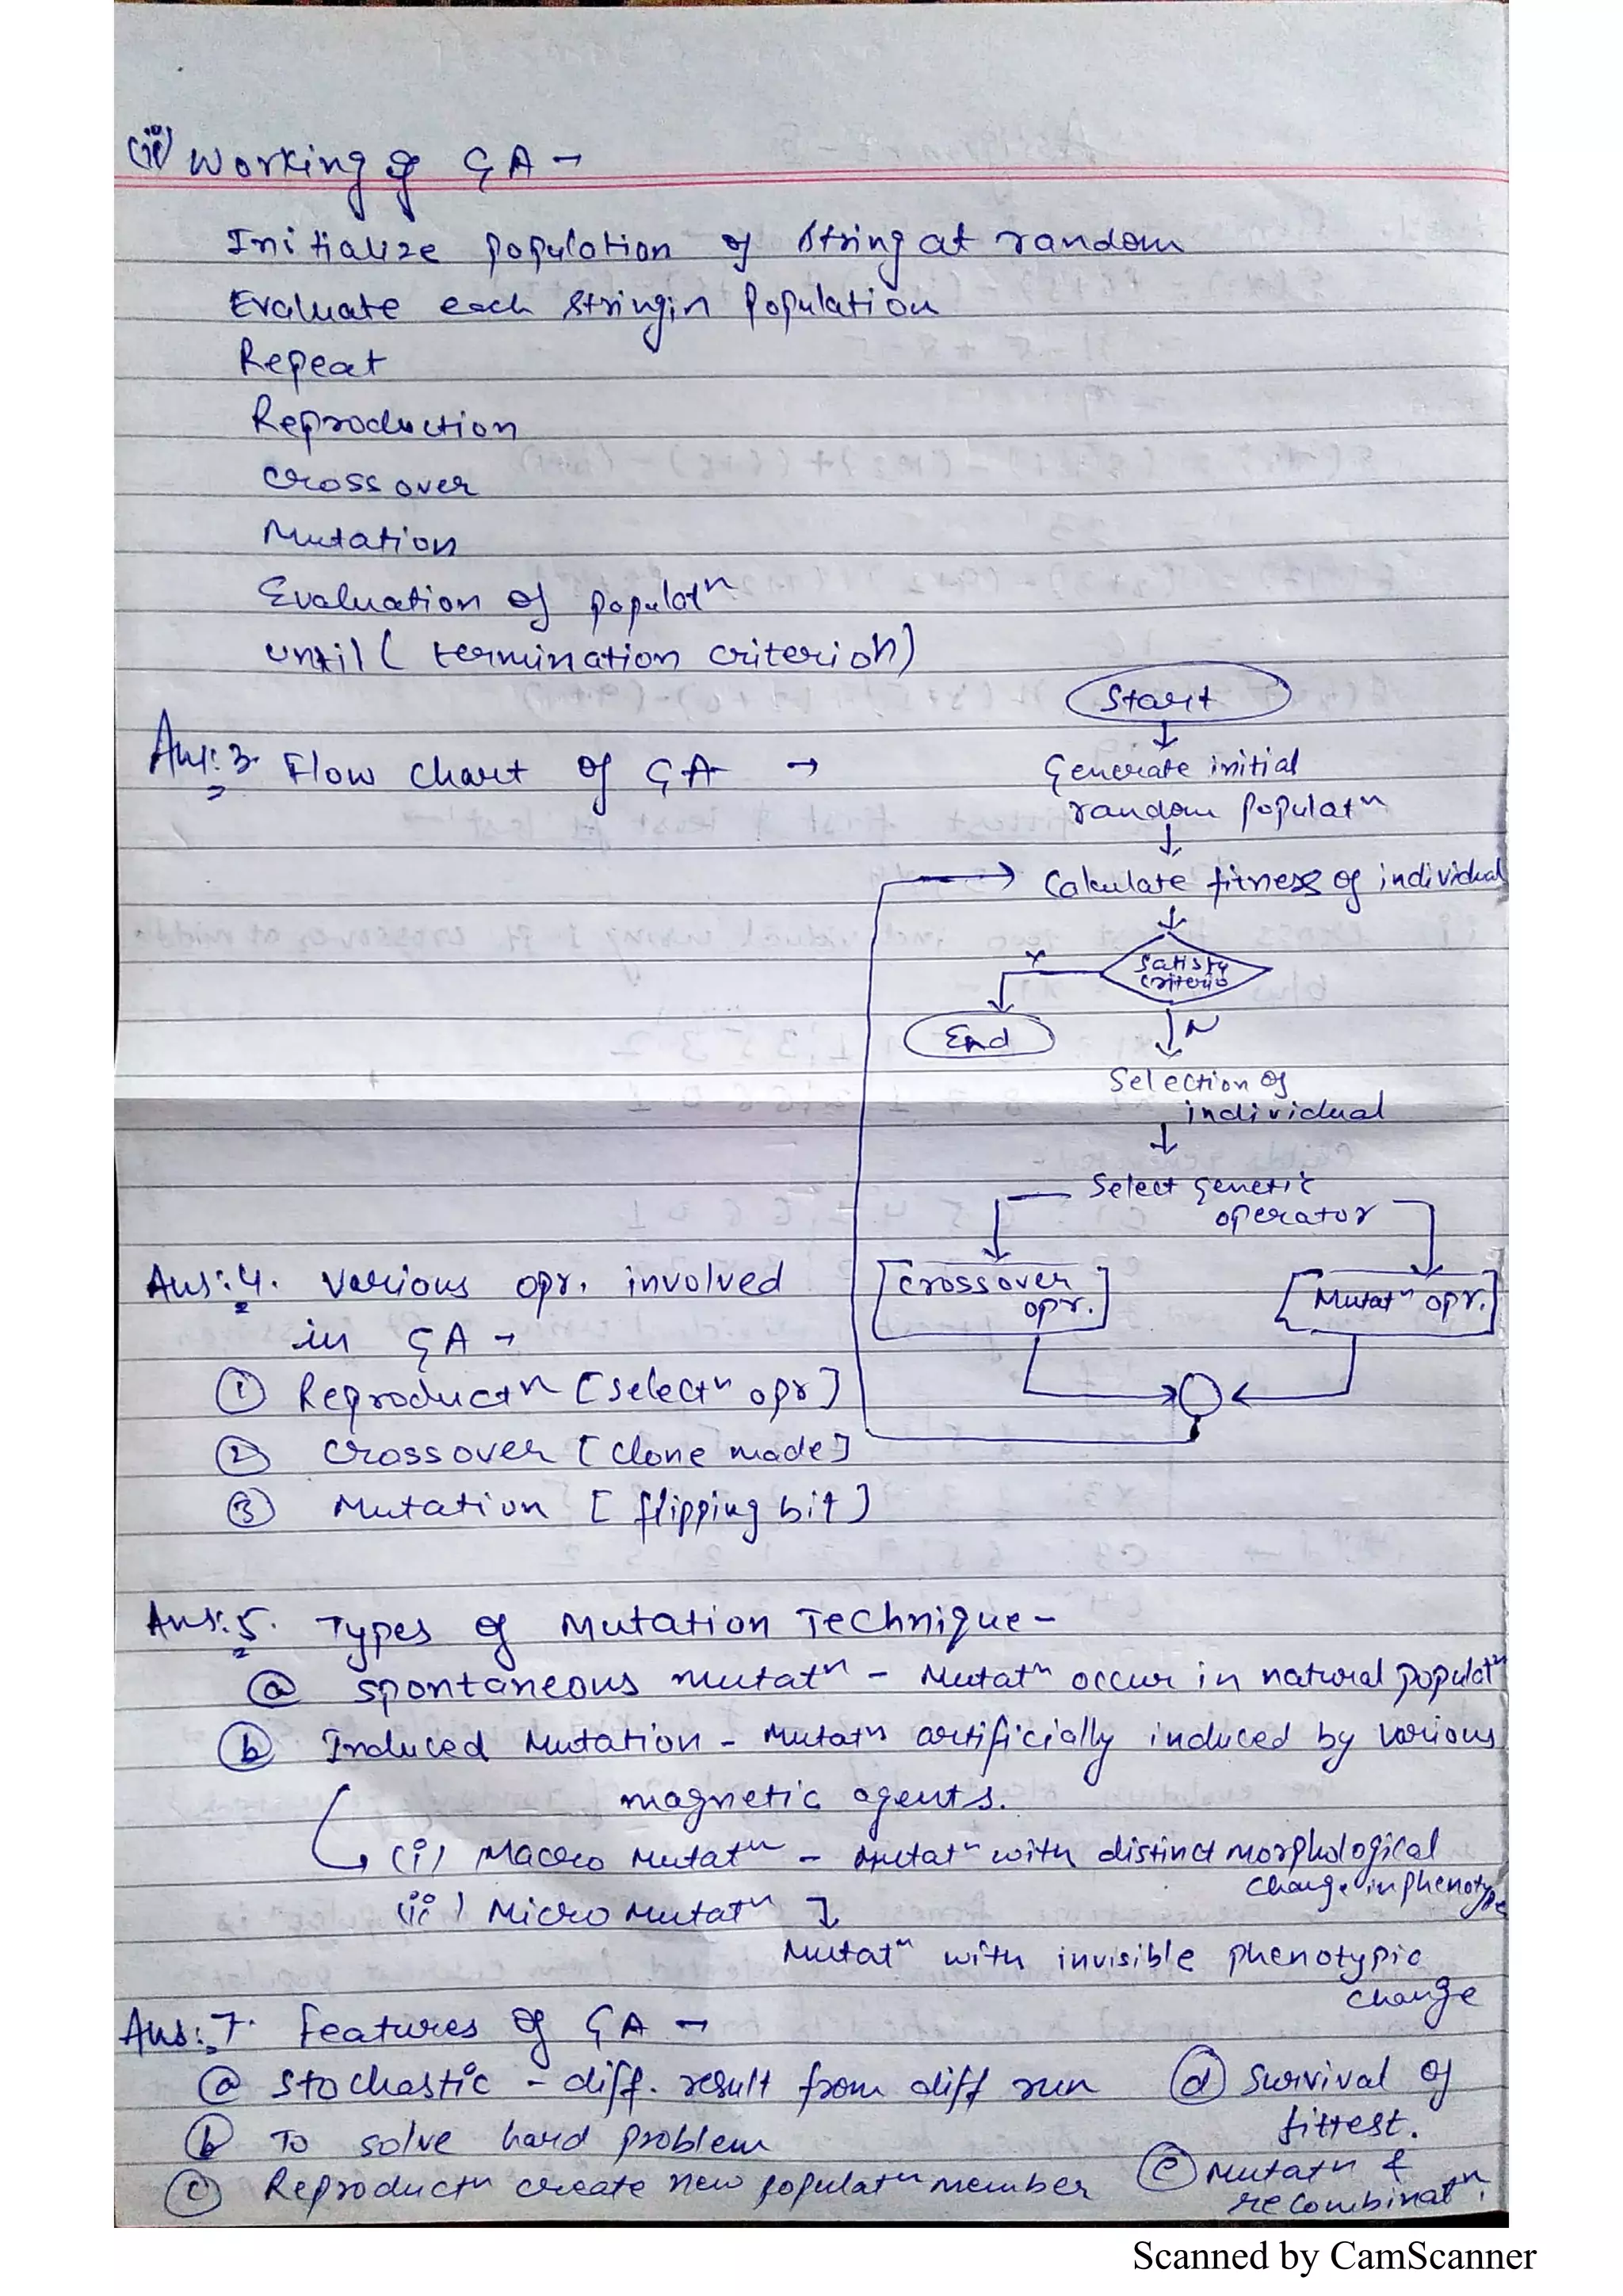 (ii) Working of GA →
Initialize population of string at random
Evaluate each string in population
Repeat
Reproduction
crossover
Mutation
Evaluation of populatn
until ( termination criterion)
Ans:3. Flow chart of GA →
Start
Generate initial
random populatn
Calculate fitness of individual
satisfy
criteria
Y
End
N
Selection of
individual
Select genetic
operator
Crossover
opr.
Mutatn opr.
Ans:4. Various opr. involved
in GA →
① Reproductn [selectn opr]
② Crossover [clone made]
③ Mutation [flipping bit]
Ans:5. Types of Mutation Technique -
ⓐ spontaneous mutatn - Mutatn occur in natural populatn
ⓑ Induced Mutation - Mutatn artificially induced by various
magnetic agents.
(i) Macro Mutatn - Mutatn with distinct morphological
change in phenotype
(ii) Micro Mutatn
Mutatn with invisible phenotypic
change
Ans:7. Features of GA →
ⓐ Stochastic - diff. result from diff run
ⓑ To solve hard problem
ⓒ Reproductn create new populatn member
ⓓ Survival of
fittest.
ⓔ Mutatn &
recombinatn.
Scanned by CamScanner